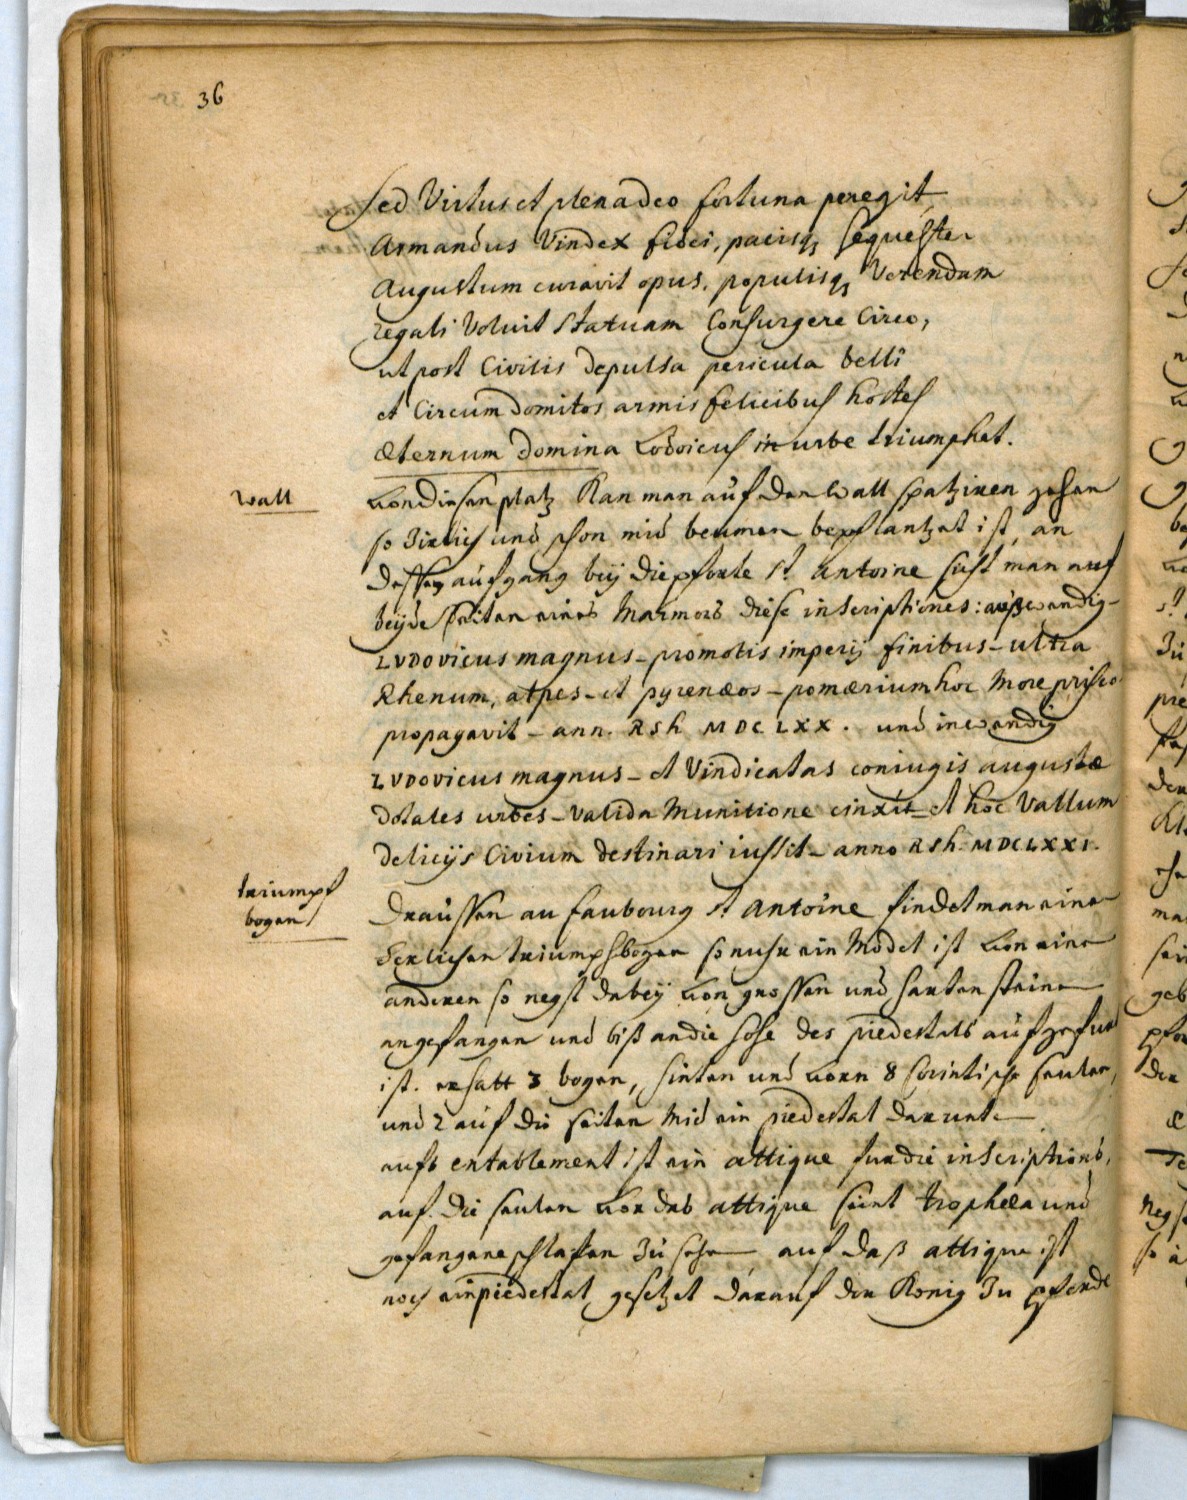 36
Sed Virtus et plena deo fortuna peregit
Armandus Vindex fidei, pacisq; sequester
Augustum curavit opus. populisq; Verendam
regali Voluit Statuam Consurgere Circo,
ut post Civilis depulsa pericula belli
et Circum domitos armis felicibus hostes
æternum domina Lodoicus in urbe triumphet.
Wall
von diesen platz Kan man auf den wall spatziren gehen
so Zirlich und schon mid beumen bepflantzet ist, an
dessen aufgang beÿ die pforte St Antoine siht man auf
beÿde seiten eines Marmors diese inscriptiones: außwendig
LVDOVICUS magnus - promotis imperij finibus - ultra
Rhenum, alpes - et pyrenæos - pomærium hoc More prisco
propagavit - ann. RSh MDCLXX. und inwendig
LVDOVICUS magnus - et Vindicatas coniugis augustæ
dotales urbes - valida Munitione cinxit - et hoc Vallum
delicijs Civium destinari iussit - anno RSh. MDCLXXI.
triumpf
bogen
Draussen au faubourg St Antoine findet man einen
herlichen triumphbogen so nuhr ein Model ist von einen
anderen so negst dabeÿ von grossen und harten steinen
angefangen und biß an die hohe des piedestals aufgefurt
ist. er hatt 3 bogen, hinten und vorn 8 Corintische seulen,
und 2 auf die seiten mid ein piedestal darunter
aufs entablement ist ein attique fur die inscriptions,
auf die seulen vor das attique seint trophæa und
gefangene schlafen zu sehen auf daß attique ist
noch ein piedestal gesetzet darauf der Konig zu pferde